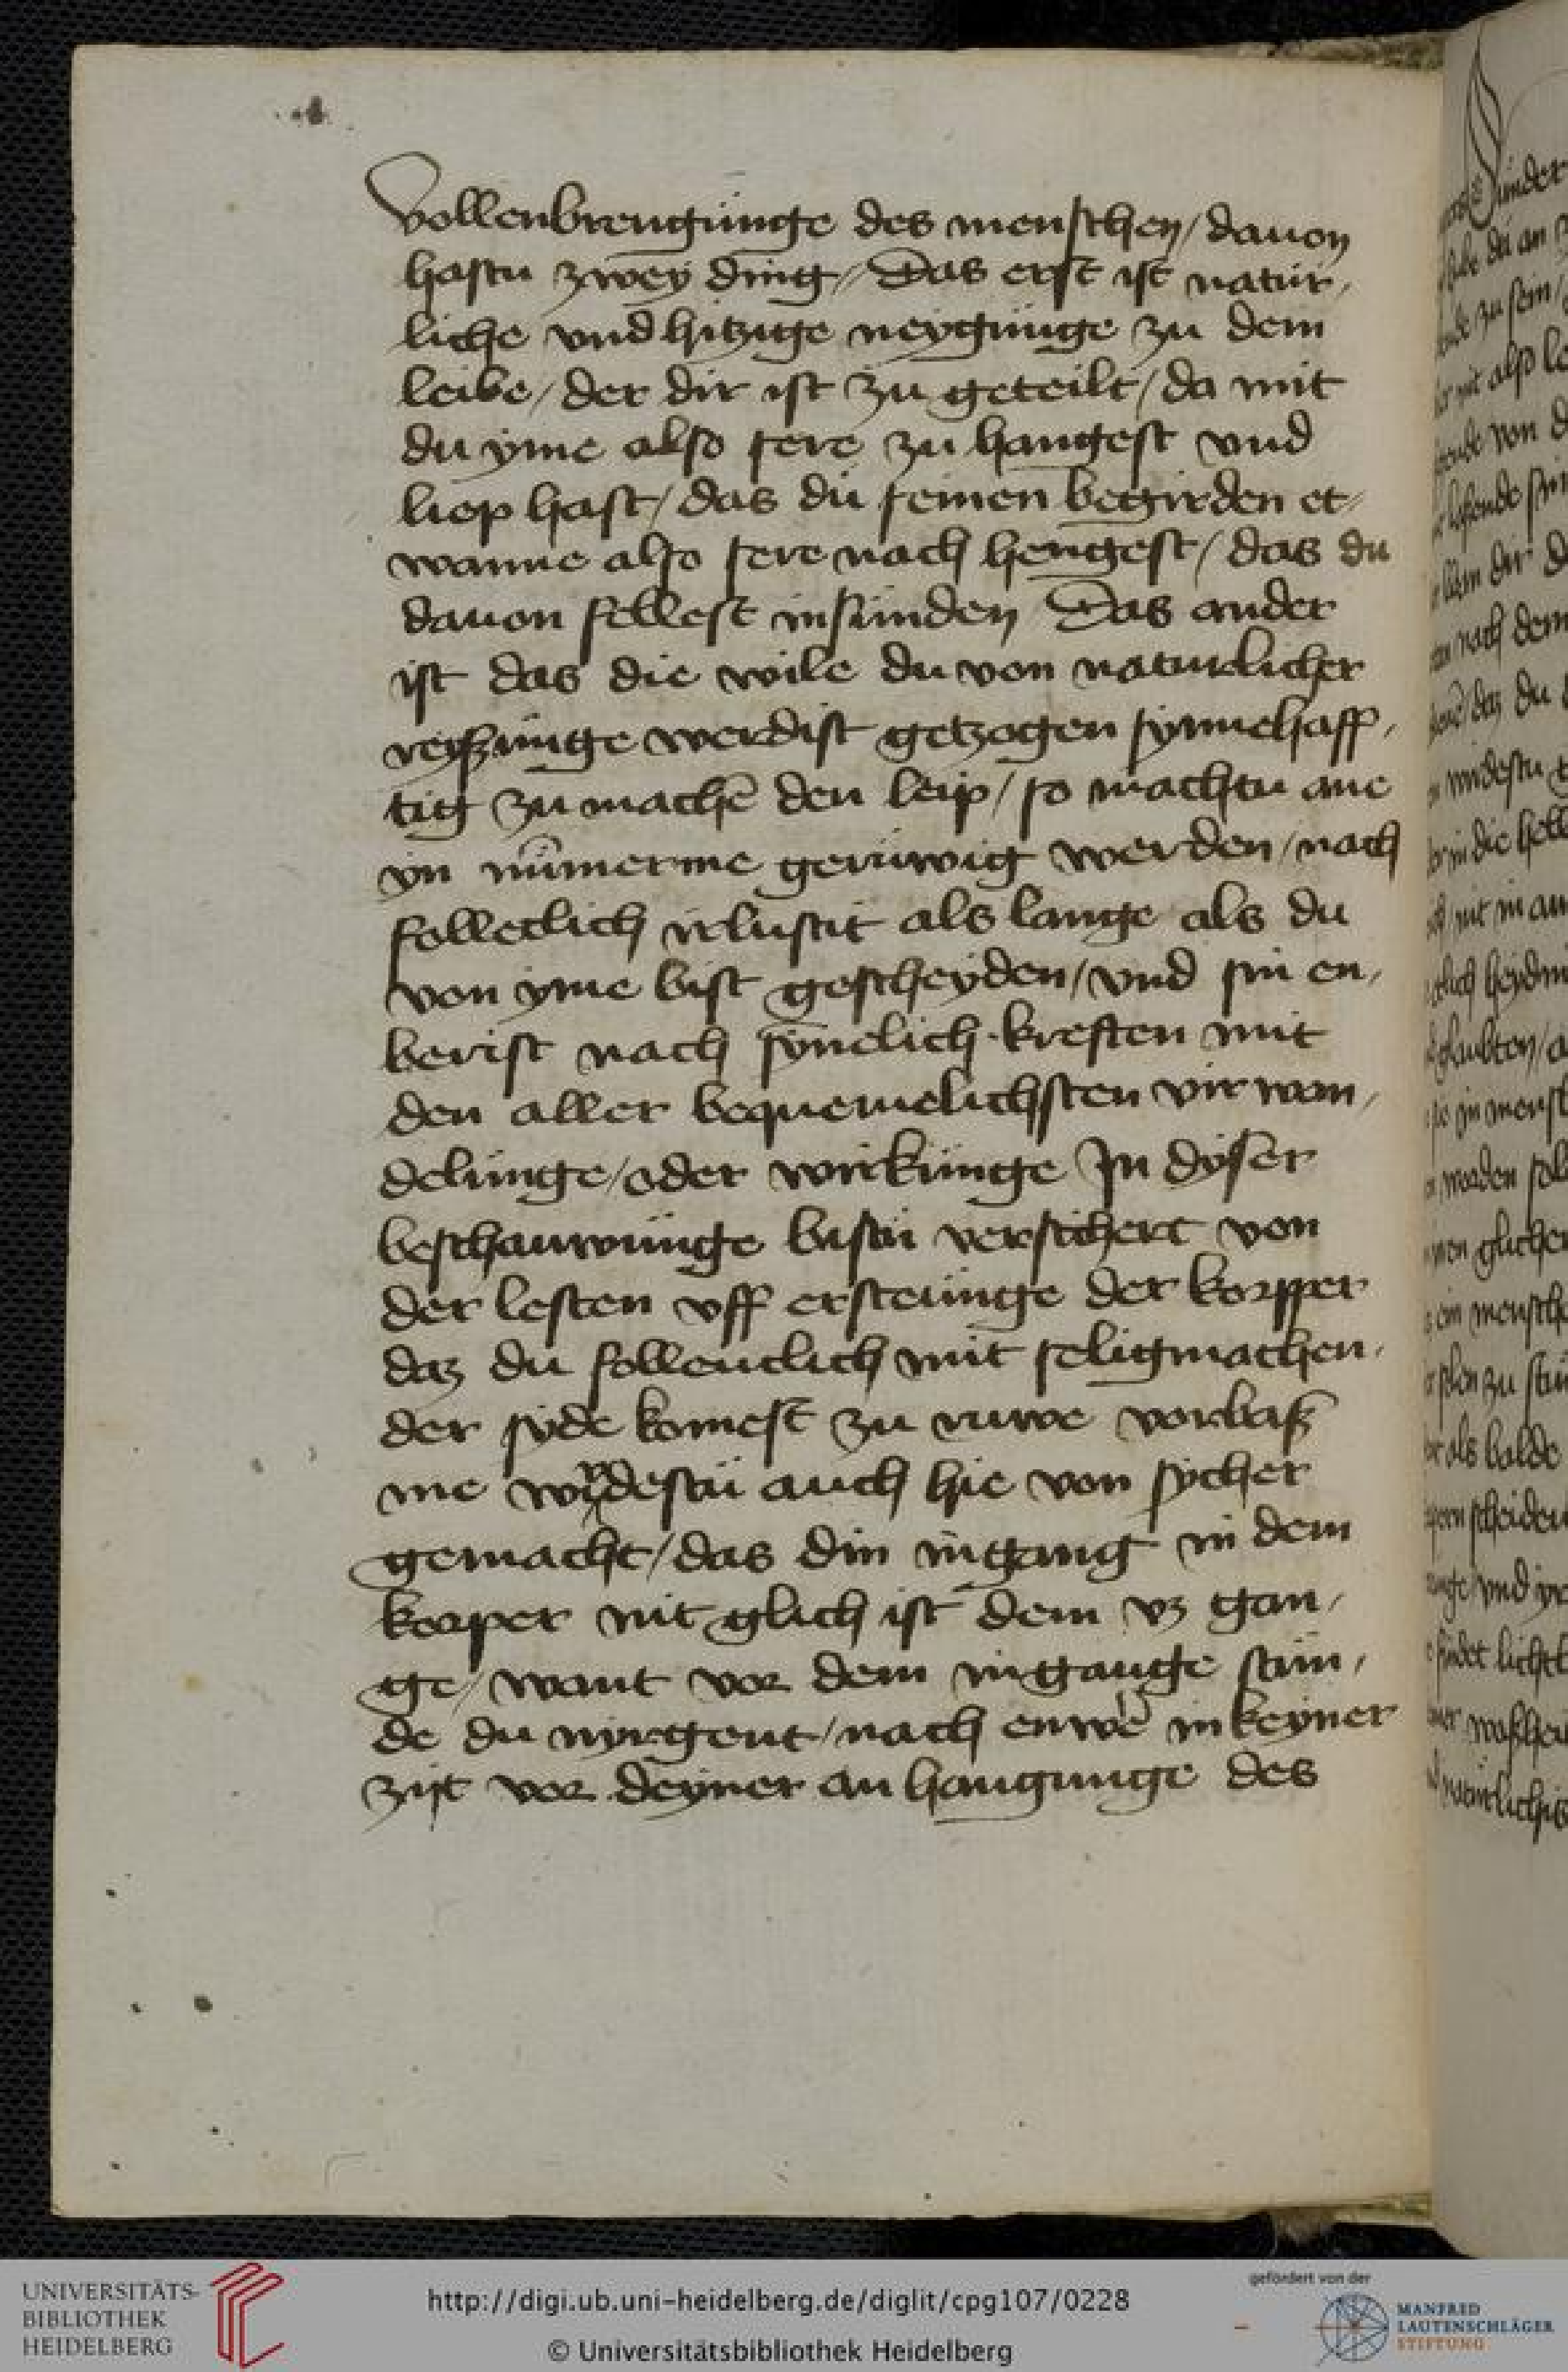 vollenbrengünge des menschen / dauon
hastu zwey ding // Das erst ist natür /
liche vnd hitzige neygünge zu dem
leibe / der dir ist zu geteilt / da mit
du yme also sere zu hangest vnd
liep hast / das dü seinen begirden et /
wanne also sere nach hengest / das du
dauon fellest in sünden Das ander
ist das die wile du von naturlicher
reyszünge werdist getzogen synnehaff /
tig zu machē den leip / so machtu ane
yn nūmerme gerüwig werden / nach
folleclich irlustit als lange als du
von yme bist gescheyden / vnd sin en /
berist nach synelich kreften mit
den aller bequemelichsten vir wan /
delünge / oder wirkünge Jn dyser
beschauwünge bistu versichert von
der lesten vff ersteünge der korpper
daz du follenclich mit seligmachen /
der syde komest zu ruwe vorbaß
me wyrdestu auch hie von sycher
gemacht / das din ingang in dem
korper nit glich ist dem vz gan /
ge / want vor dem ingange stün /
de du nyrgent / nach enwe in keyner
zijt vor deyner an hangunge des
UNIVERSITÄTS-
BIBLIOTHEK
HEIDELBERG
http://digi.ub.uni-heidelberg.de/diglit/cpg107/0228
© Universitätsbibliothek Heidelberg
gefördert von der
MANFRED
LAUTENSCHLÄGER
STIFTUNG